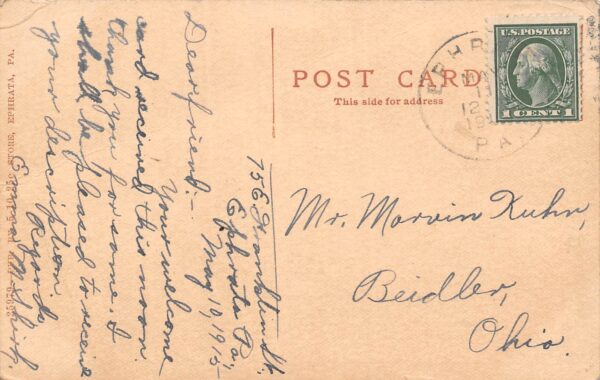 POST CARD
This side for address
U.S. POSTAGE
1 CENT 1
EPHR
PA
12
156 Franklin St.
Ephrata Pa.
May 10, 1915
Dear friend:-
Your welcome
card received this noon.
thank you for same. I
shall be pleased to receive
your description.
Regards
Emma M. Shirk.
Mr. Marvin Kuhn,
Beidler,
Ohio.
5-10-25c STORE, EPHRATA, PA.